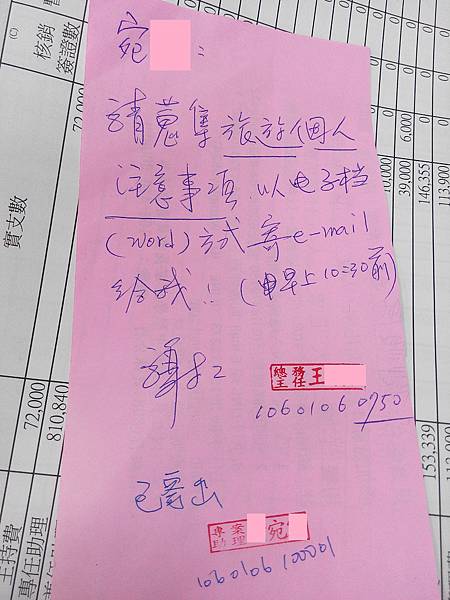 宛 :
請蒐集旅遊個人
注意事項,以电子档
(word)方式寄e-mail
給我!(早上10:30前)
總務
主任 王
1060106 0750
已寄出
專案
助理 宛
1060106 100001
(C)
核銷
簽證數
72,000
實支數
72,000
810,840
主持費
專任助理
兼任助理
39,000
6,000
146,355
113,900
153,339
0
0
0
0
0
0